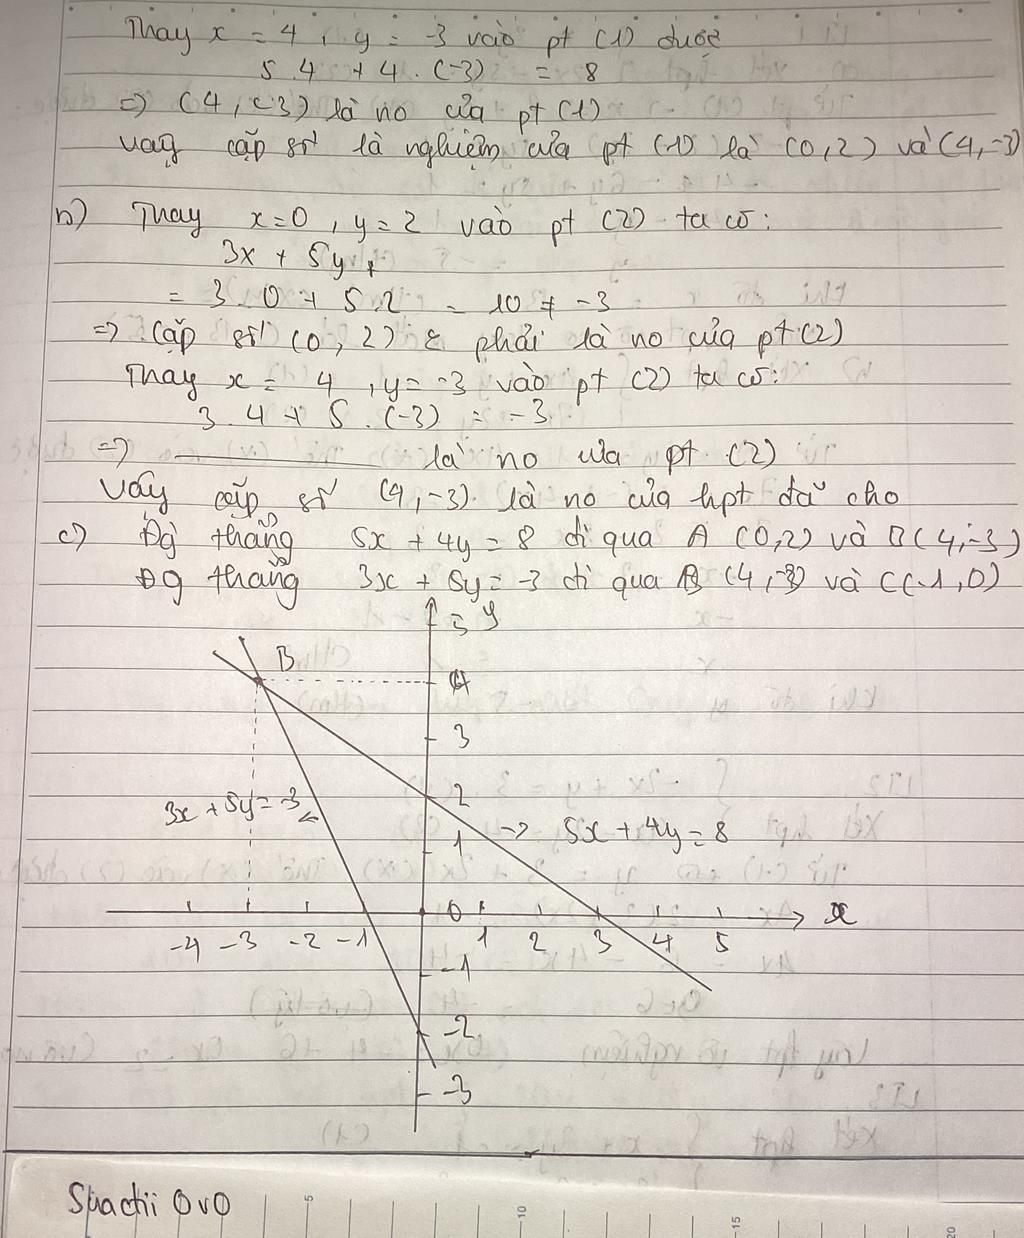 Thay x = 4, y = -3 vào pt (1) được
5.4 + 4.(-3) = 8
=> (4, -3) là no của pt (1)
Vậy cặp số là nghiệm của pt (1) là (0,2) và (4,-3)
b) Thay x=0, y=2 vào pt (2) ta có:
3x + 5y
= 3.0 + 5.2 = 10 ≠ -3
=> Cặp số (0, 2) phải là no của pt (2)
Thay x = 4, y= -3 vào pt (2) ta có:
3.4 + 5.(-3) = -3
=> ——— là no của pt (2)
Vậy cặp số (4, -3) là no của hpt đã cho
c) Đg thẳng 5x + 4y = 8 đi qua A (0,2) và B(4,-3)
Đg thẳng 3x + 5y = -3 đi qua B (4,-3) và C(-1,0)
5 y
B 4
3
2
3x + 5y = -3
1 => 5x + 4y = 8
0 x
-4 -3 -2 -1 1 2 3 4 5
-1
-2
-3
Suachii OvO
5 -10 -15 20